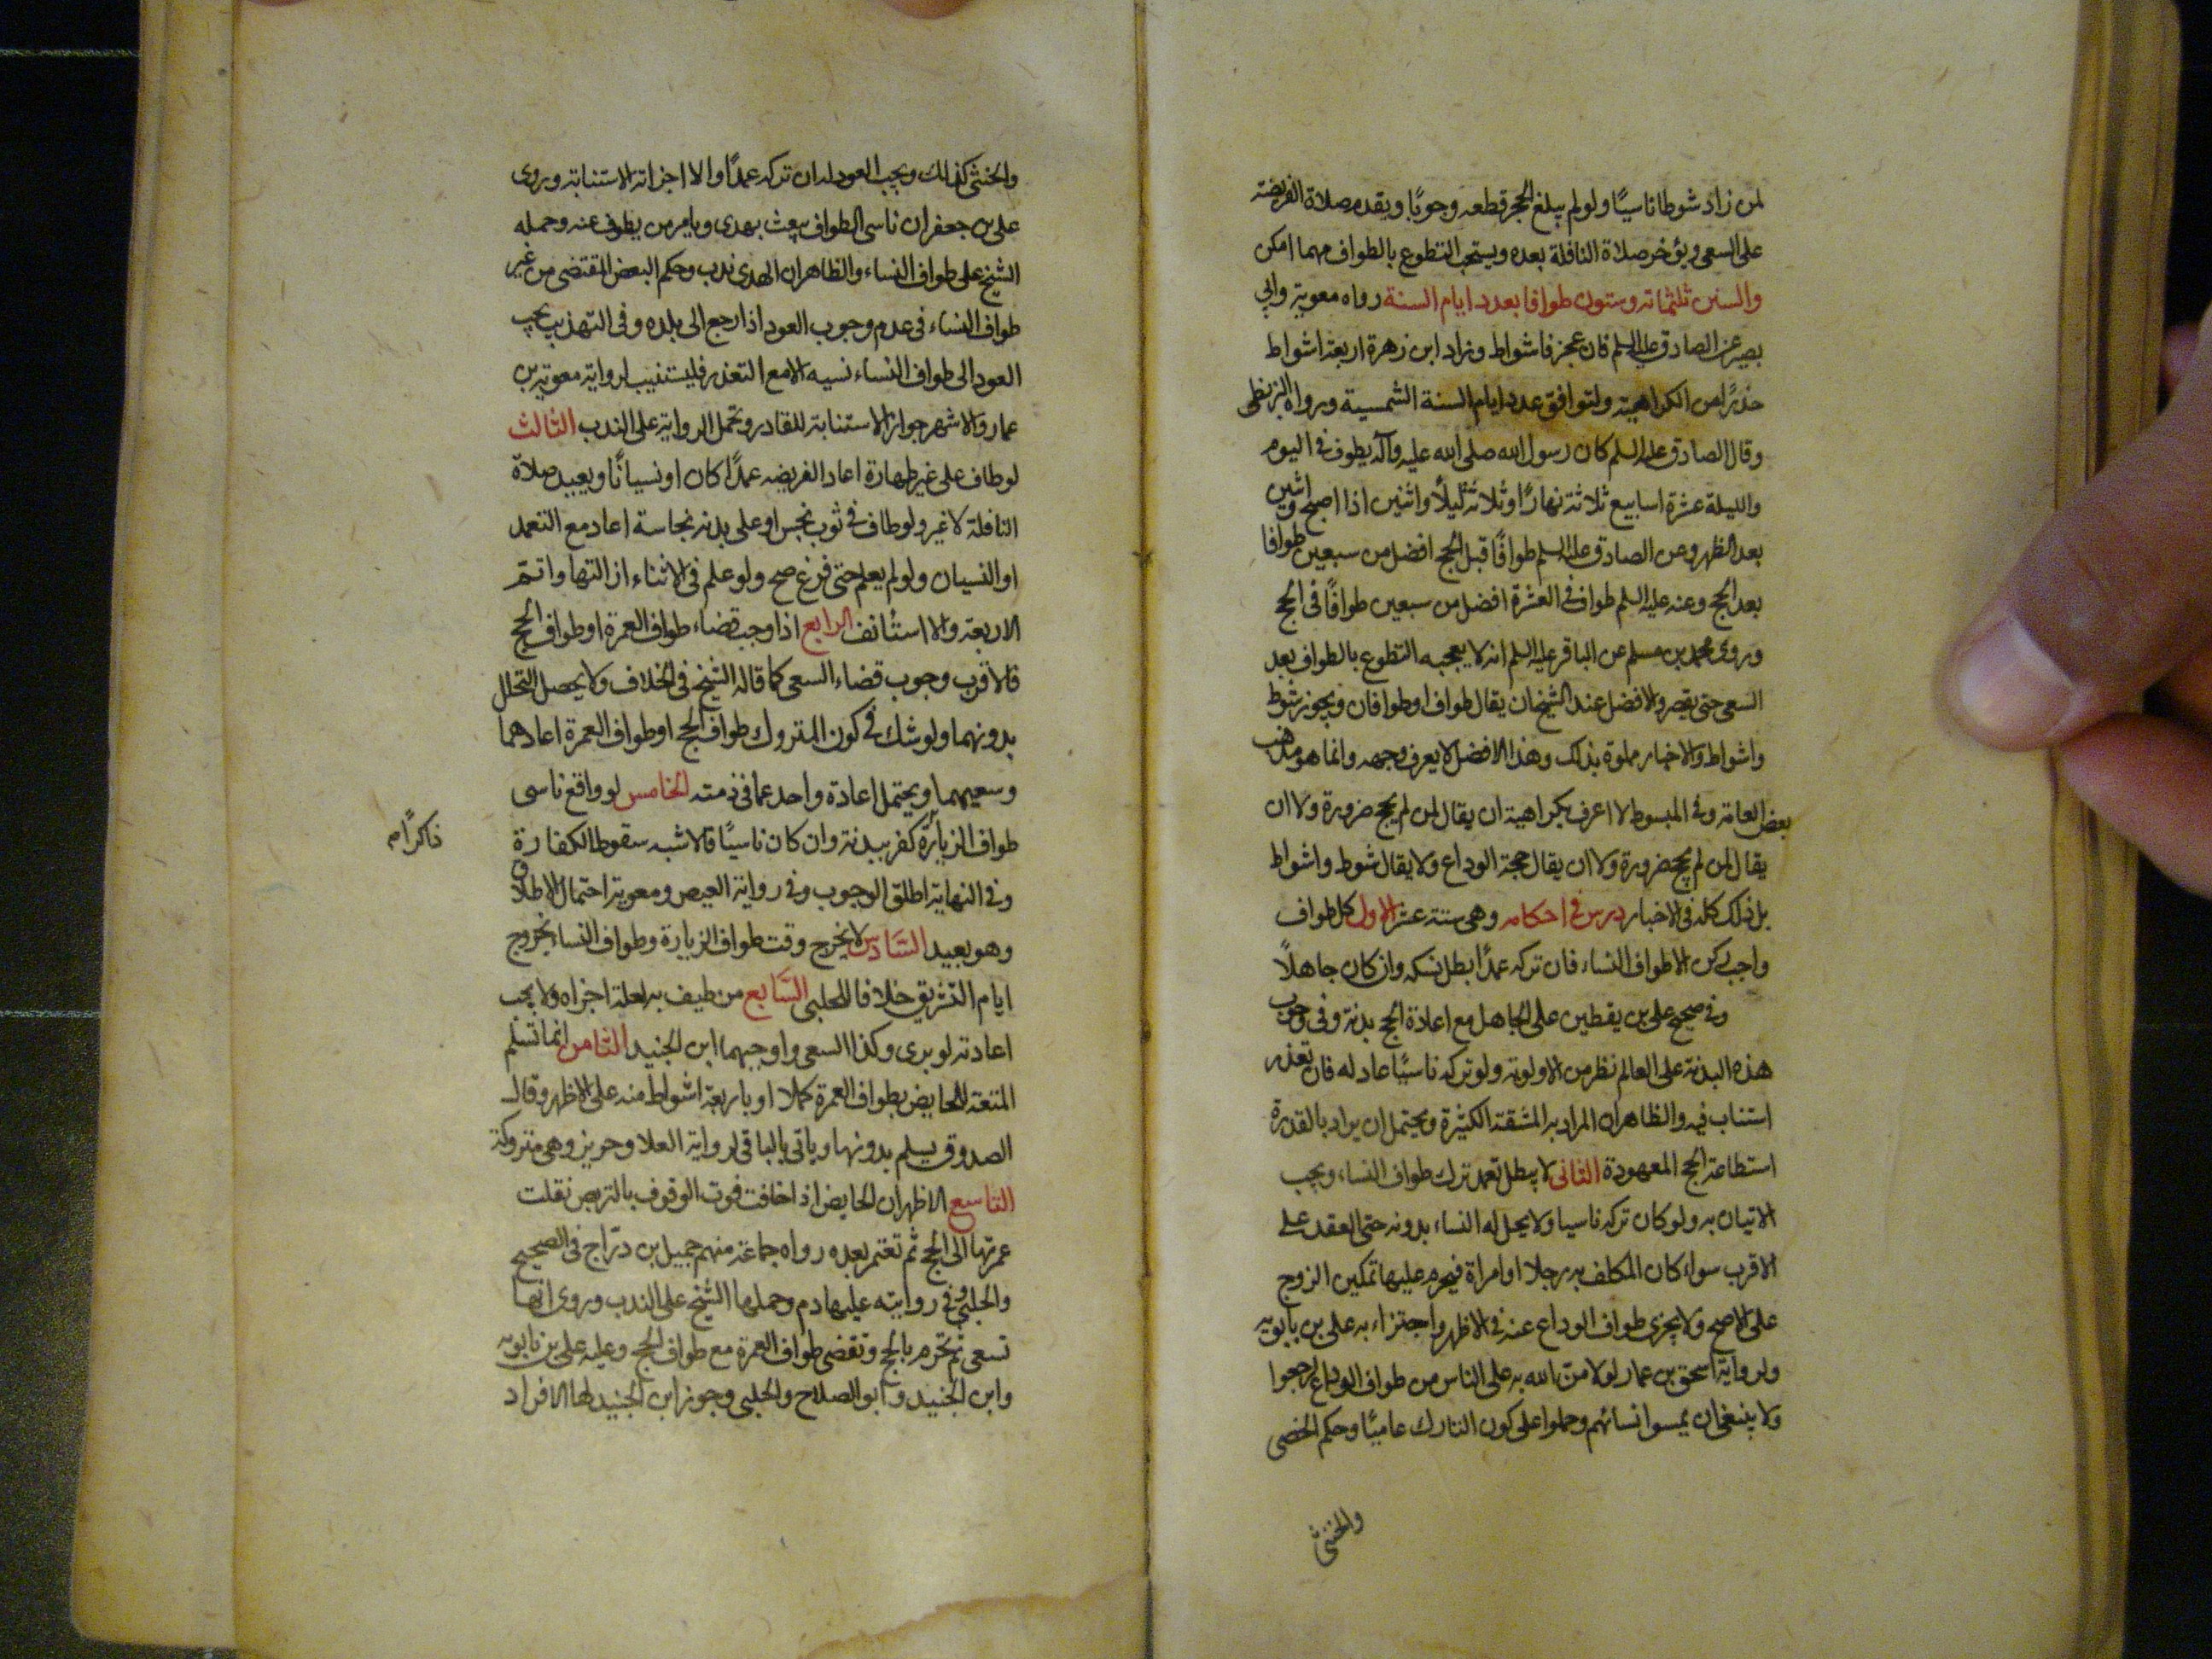 لمن زاد شوطا ناسيًا ولو لم يبلغ الحجر قطعه وجوبًا ويقدم صلاة الفريضة
على السعى ويؤخر صلاة النافلة بعده ويستحب التطوع بالطواف مهما امكن
والسنن ثلثمائة وستون طوافا بعدد ايام السنة رواه معوية وابي
بصير عن الصادق عليه السلم فان عجز فاشواط وزاد ابن زهرة اربعة اشواط
حذرًا من الكراهية ولتوافق عدد ايام السنة الشمسية ورواه البزنطى
وقال الصادق عليه السلم كان رسول الله صلى الله عليه وآله يطوف فى اليوم
والليلة عشرة اسابيع ثلاثة نهارًا وثلاثة ليلًا واثنين اذا اصبح واثنين
بعد الظهر وعن الصادق عليه السلم طوافًا قبل الحج افضل من سبعين طوافا
بعد الحج وعنه عليه السلم طواف فى العشرة افضل من سبعين طوافًا فى الحج
وروى محمد بن مسلم عن الباقر عليه السلم انه لا يعجبه التطوع بالطواف بعد
السعى حتى يقصر والافضل عند الشيخ ان يقال طواف او طوافان ويجوز شوط
واشواط والاخبار مملوة بذلك وهذا الافضل لا يعرف وجهه وانما هو مذهب
بعض العامة وفى المبسوط لا اعرف بكراهية ان يقال لمن لم يحج ضرورة ولا ان
يقال لمن لم يحج ضرورة ولا ان يقال حجة الوداع ولا يقال شوط واشواط
بل ذلك كله فى الاخبار درس فى احكامه وهى ستة عشر الاول كل طواف
واجب ركن الا طواف النساء فان تركه عمدًا بطل نسكه وان كان جاهلًا
وفى صحيح على بن يقطين على الجاهل مع اعادة الحج بدنة وفى وجوب
هذه البدنة على العالم نظر من الاولوية ولو تركه ناسيًا عاد له فان تعذر
استناب فيه والظاهران المراد به المشقة الكثيرة ويحتمل ان يراد بالقدرة
استطاعة الحج المعهودة الثانى لا يبطل تعمد ترك طواف النساء ويجب
الاتيان به ولو كان تركه ناسيا ولا يحل له النساء بدونه حتى العقد على
الاقرب سواء كان المكلف به رجلا او امراة فيحرم عليها تمكين الزوج
على الاصح ولا يجزى طواف الوداع عنه فى الاظهر واجتزاء به على بن بابويه
ولرواية اسحق بن عمار لولا من الله به على الناس من طواف الوداع لرجعوا
ولا ينبغى ان يمسوا نسائهم وحملوا على كون التارك عاميًا وحكم الخصى
والخنثى
والخنثى كذلك ويجب العود له ان تركه عمدًا والا اجزاته الاستنابة وروى
على بن جعفر ان ناسى الطواف يبعث بهدى ويامر من يطوف عنه وحمله
الشيخ على طواف النساء والظاهران الهدى ندب وحكم البعض المقتضى من غير
طواف النساء فى عدم وجوب العود اذا رجع الى بلده وفى التهذيب يجب
العود الى طواف النساء نسيه الا مع التعذر فليستنيب لرواية معوية بن
عمار والاشهر جواز الاستنابة للقادر وتحمل الرواية على الندب الثالث
لو طاف على غير طهارة اعاد الفريضه عمدًا كان او نسيانًا ويعيد صلاة
النافلة لا غير ولو طاف فى ثوب نجس او على بدنه نجاسة اعاد مع التعمد
او النسيان ولو لم يعلم حتى فرغ صح ولو علم فى الاثناء ازالتها واتم
الاربعة والا استأنف الرابع اذا وجب قضاء طواف العمرة او طواف الحج
فالاقرب وجوب قضاء السعى كما قاله الشيخ فى الخلاف ولا يحصل التحلل
بدونهما ولو شك فى كون المتروك طواف الحج او طواف العمرة اعادهما
وسعيهما ويحتمل اعادة واحد عما فى ذمته الخامس لو واقع ناسى
طواف الزيارة كفر ببدنة وان كان ناسيًا فالاشبه سقوط الكفارة
ذاكرًا م
وفى النهاية اطلق الوجوب وفى رواية العيص ومعوية احتمال الاطلاق
وهو بعيد السادس لا يخرج وقت طواف الزيارة وطواف النساء بخروج
ايام التشريق خلافا للحلبى السابع من طيف به لعلة اجزاه ولا يجب
اعادته لو برى وكذا السعى واوجبهما ابن الجنيد الثامن انما تسلم
المتعة للحايض بطواف العمرة كملا او باربعة اشواط منه على الاظهر وقال
الصدوق يسلم بدونها وياتى بالباقى لرواية العلا وحريز وهى متروكة
التاسع الاظهران الحايض اذا خافت فوت الوقوف بالتربص نقلت
عمرتها الى الحج ثم تعتمر بعده رواه جماعة منهم جميل بن درّاج فى الصحيح
والحلبى وفى روايته عليها دم وحملها الشيخ على الندب وروى انها
تسعى ثم تحرم بالحج وتقضى طواف العمرة مع طواف الحج وعليه على بن بابويه
وابن الجنيد وابو الصلاح والحلبى وجوز ابن الجنيد لها الافراد